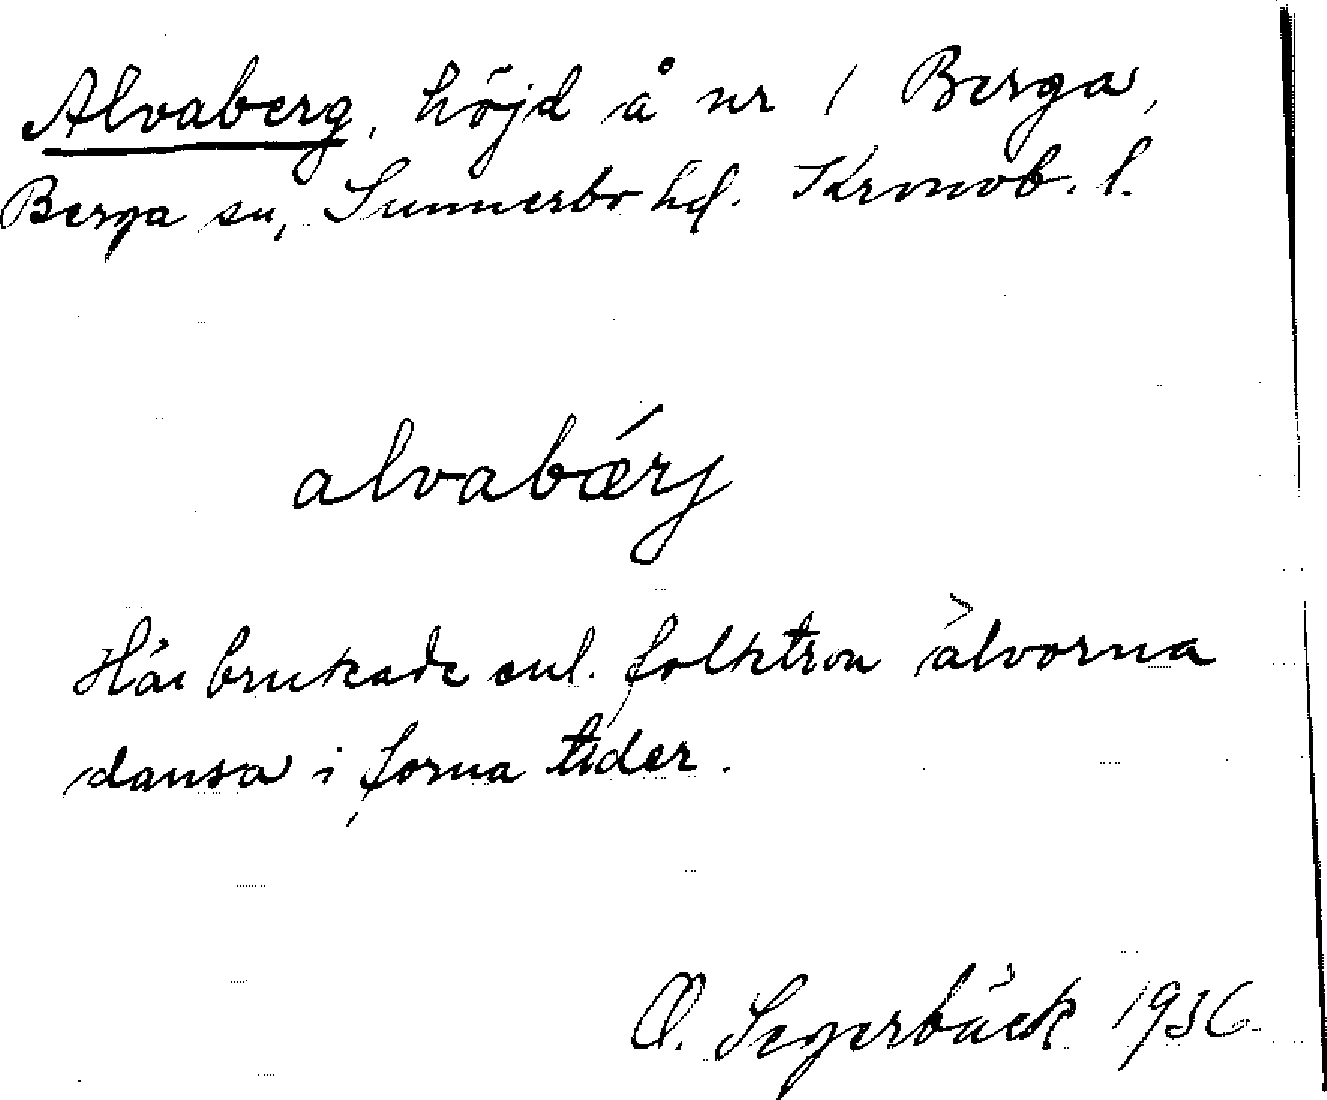 Alvaberg, höjd å nr 1 Berga,
Berga sn, Sunnerbo hd. Kronob. l.
alvabǽrj
Här brukade enl. folktron älvorna
dansa i forna tider.
O. Segerbäck 1936